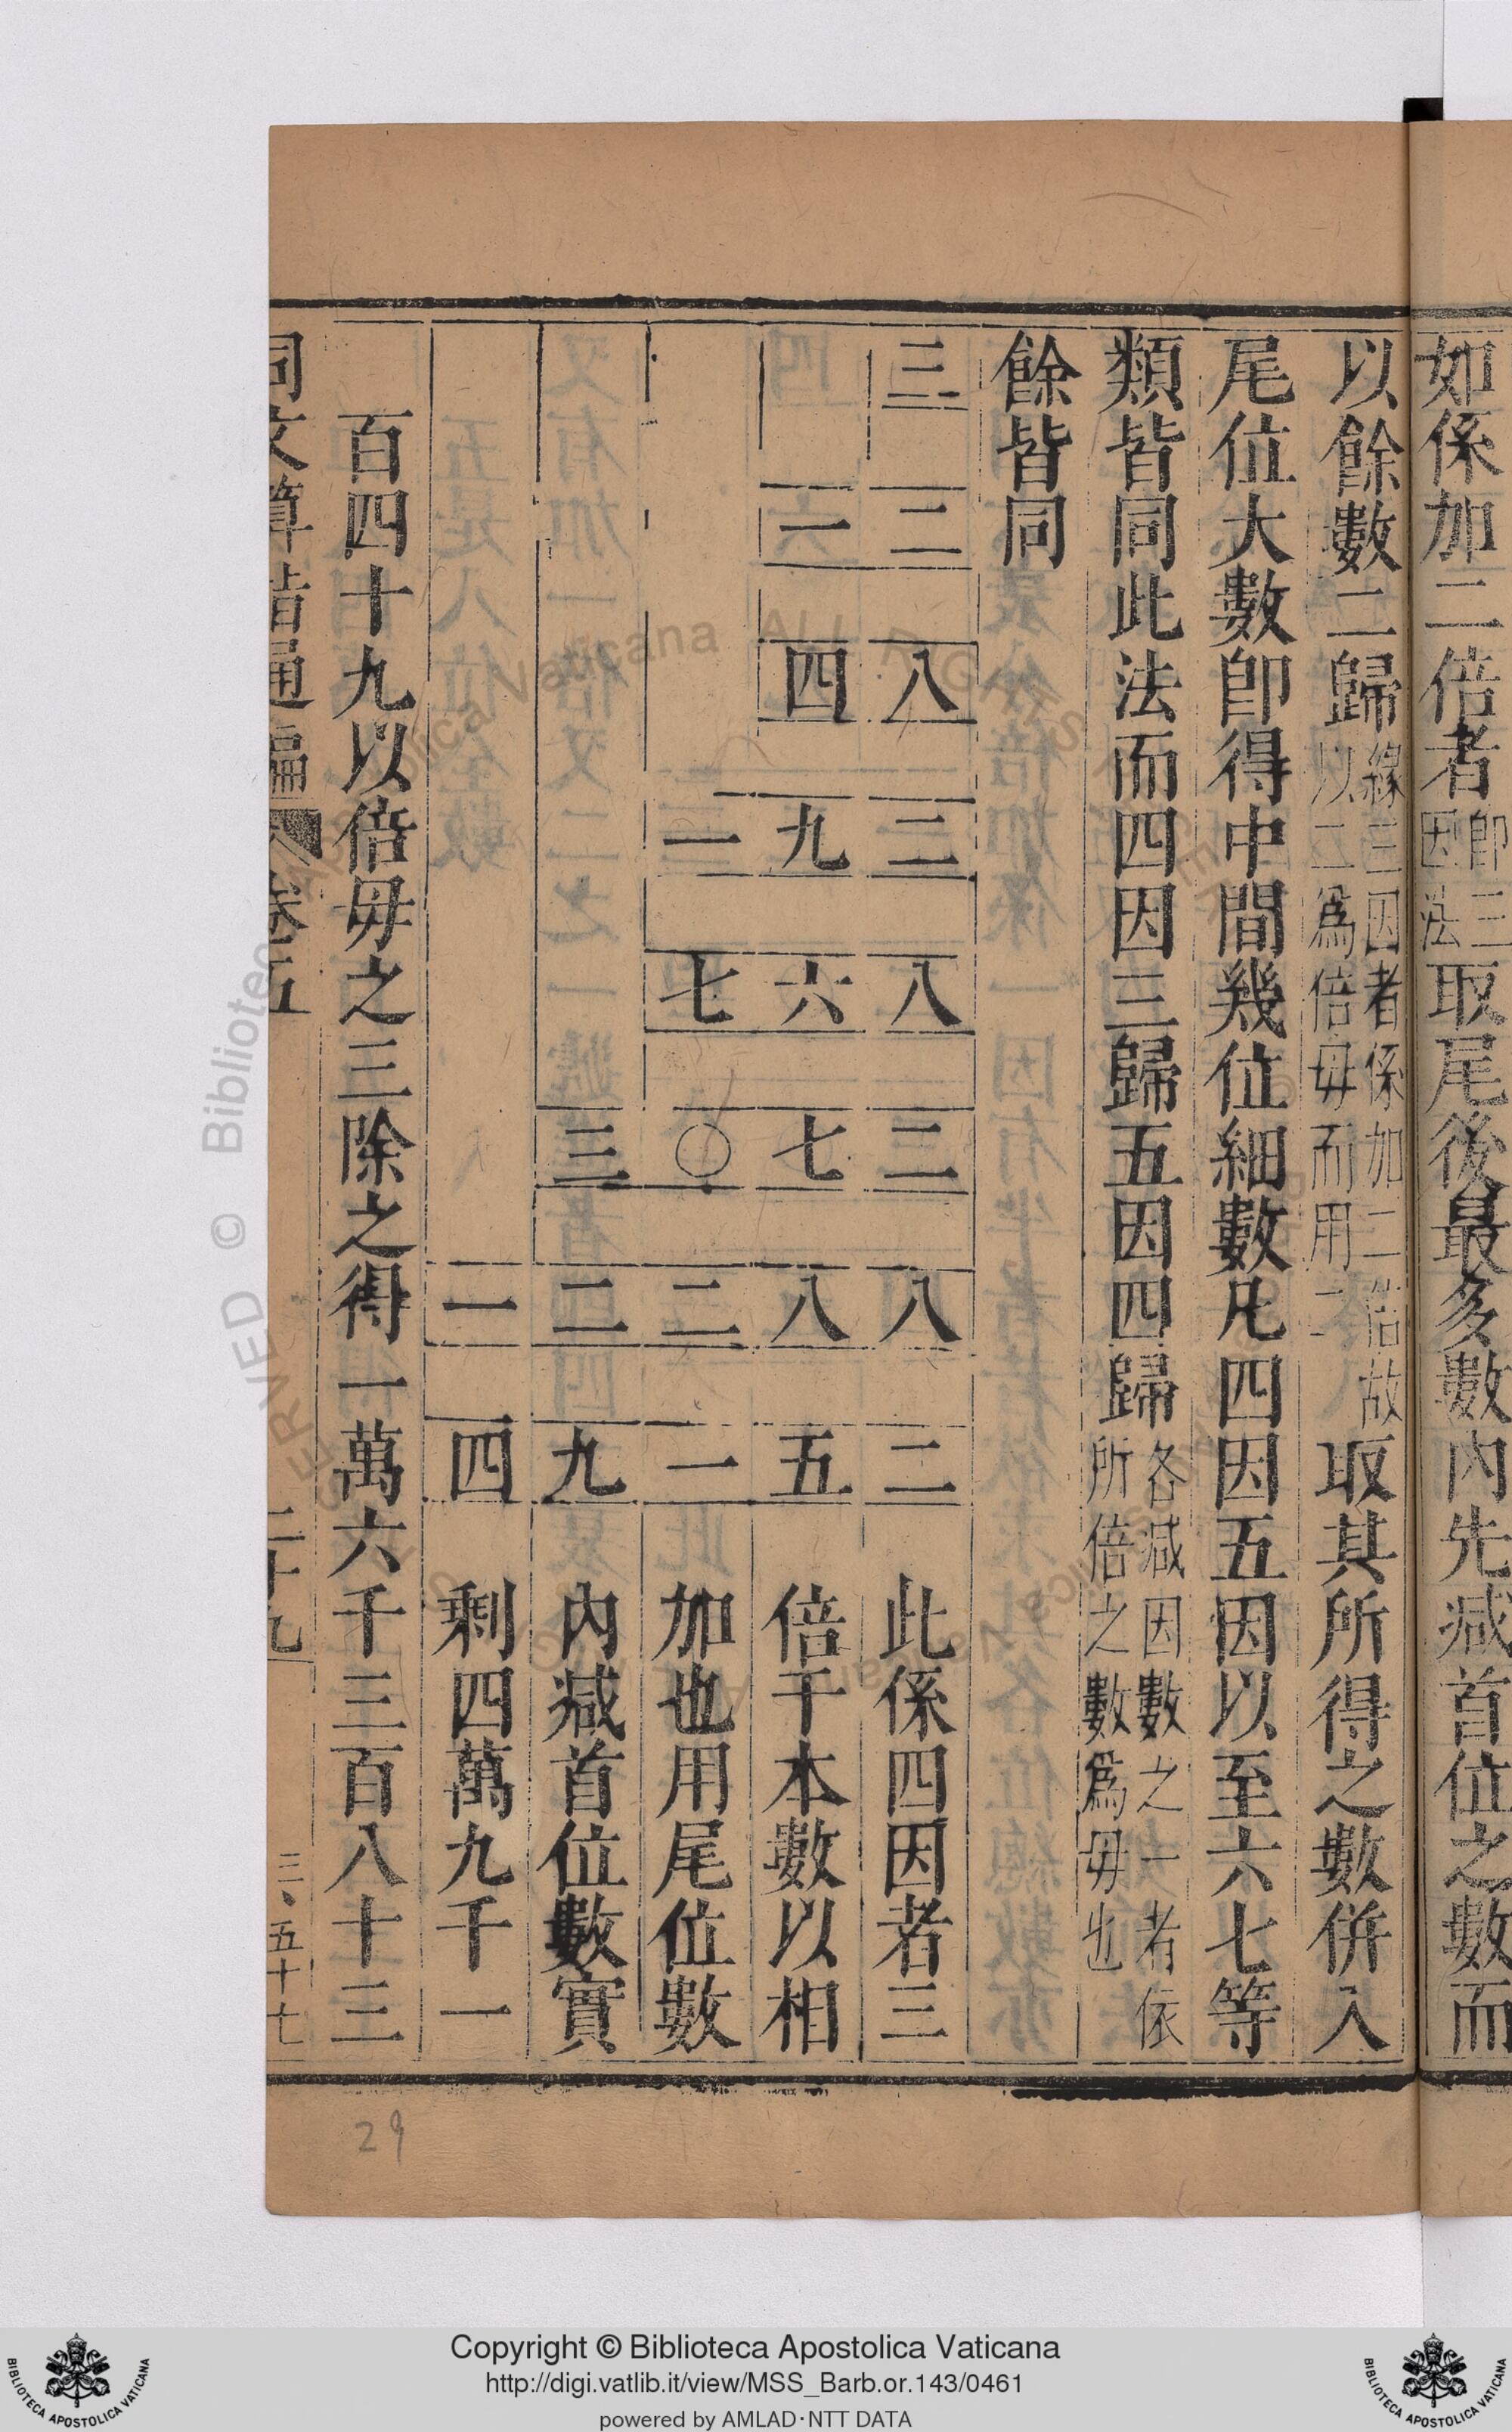 如係加二倍者即三因法取尾後最多數內先減首位之數而
以餘數二歸緣三因者係加二倍故以二爲倍毋而用二取其所得之數併入
尾位大數卽得中間幾位細數凡四因五因以至六七等
類皆同此法而四因三歸五因四歸各減因數之一者依所倍之數爲毋也
餘皆同
三 二 八 二 八 二 八 二 此係四因者三
一 四 九 六 七 八 五 倍于本數以相
一 七 〇 二 一 加也用尾位數
三 二 九 內減首位數實
一 四 剩四萬九千一
百四十九以倍毋之三除之得一萬六千三百八十三
同文算指通編 卷五 二十九 三、五十七
29
© Biblioteca Apostolica Vaticana ALL RIGHTS RESERVED
Copyright © Biblioteca Apostolica Vaticana
http://digi.vatlib.it/view/MSS_Barb.or.143/0461
powered by AMLAD·NTT DATA
BIBLIOTECA APOSTOLICA VATICANA
BIBLIOTECA APOSTOLICA VATICANA